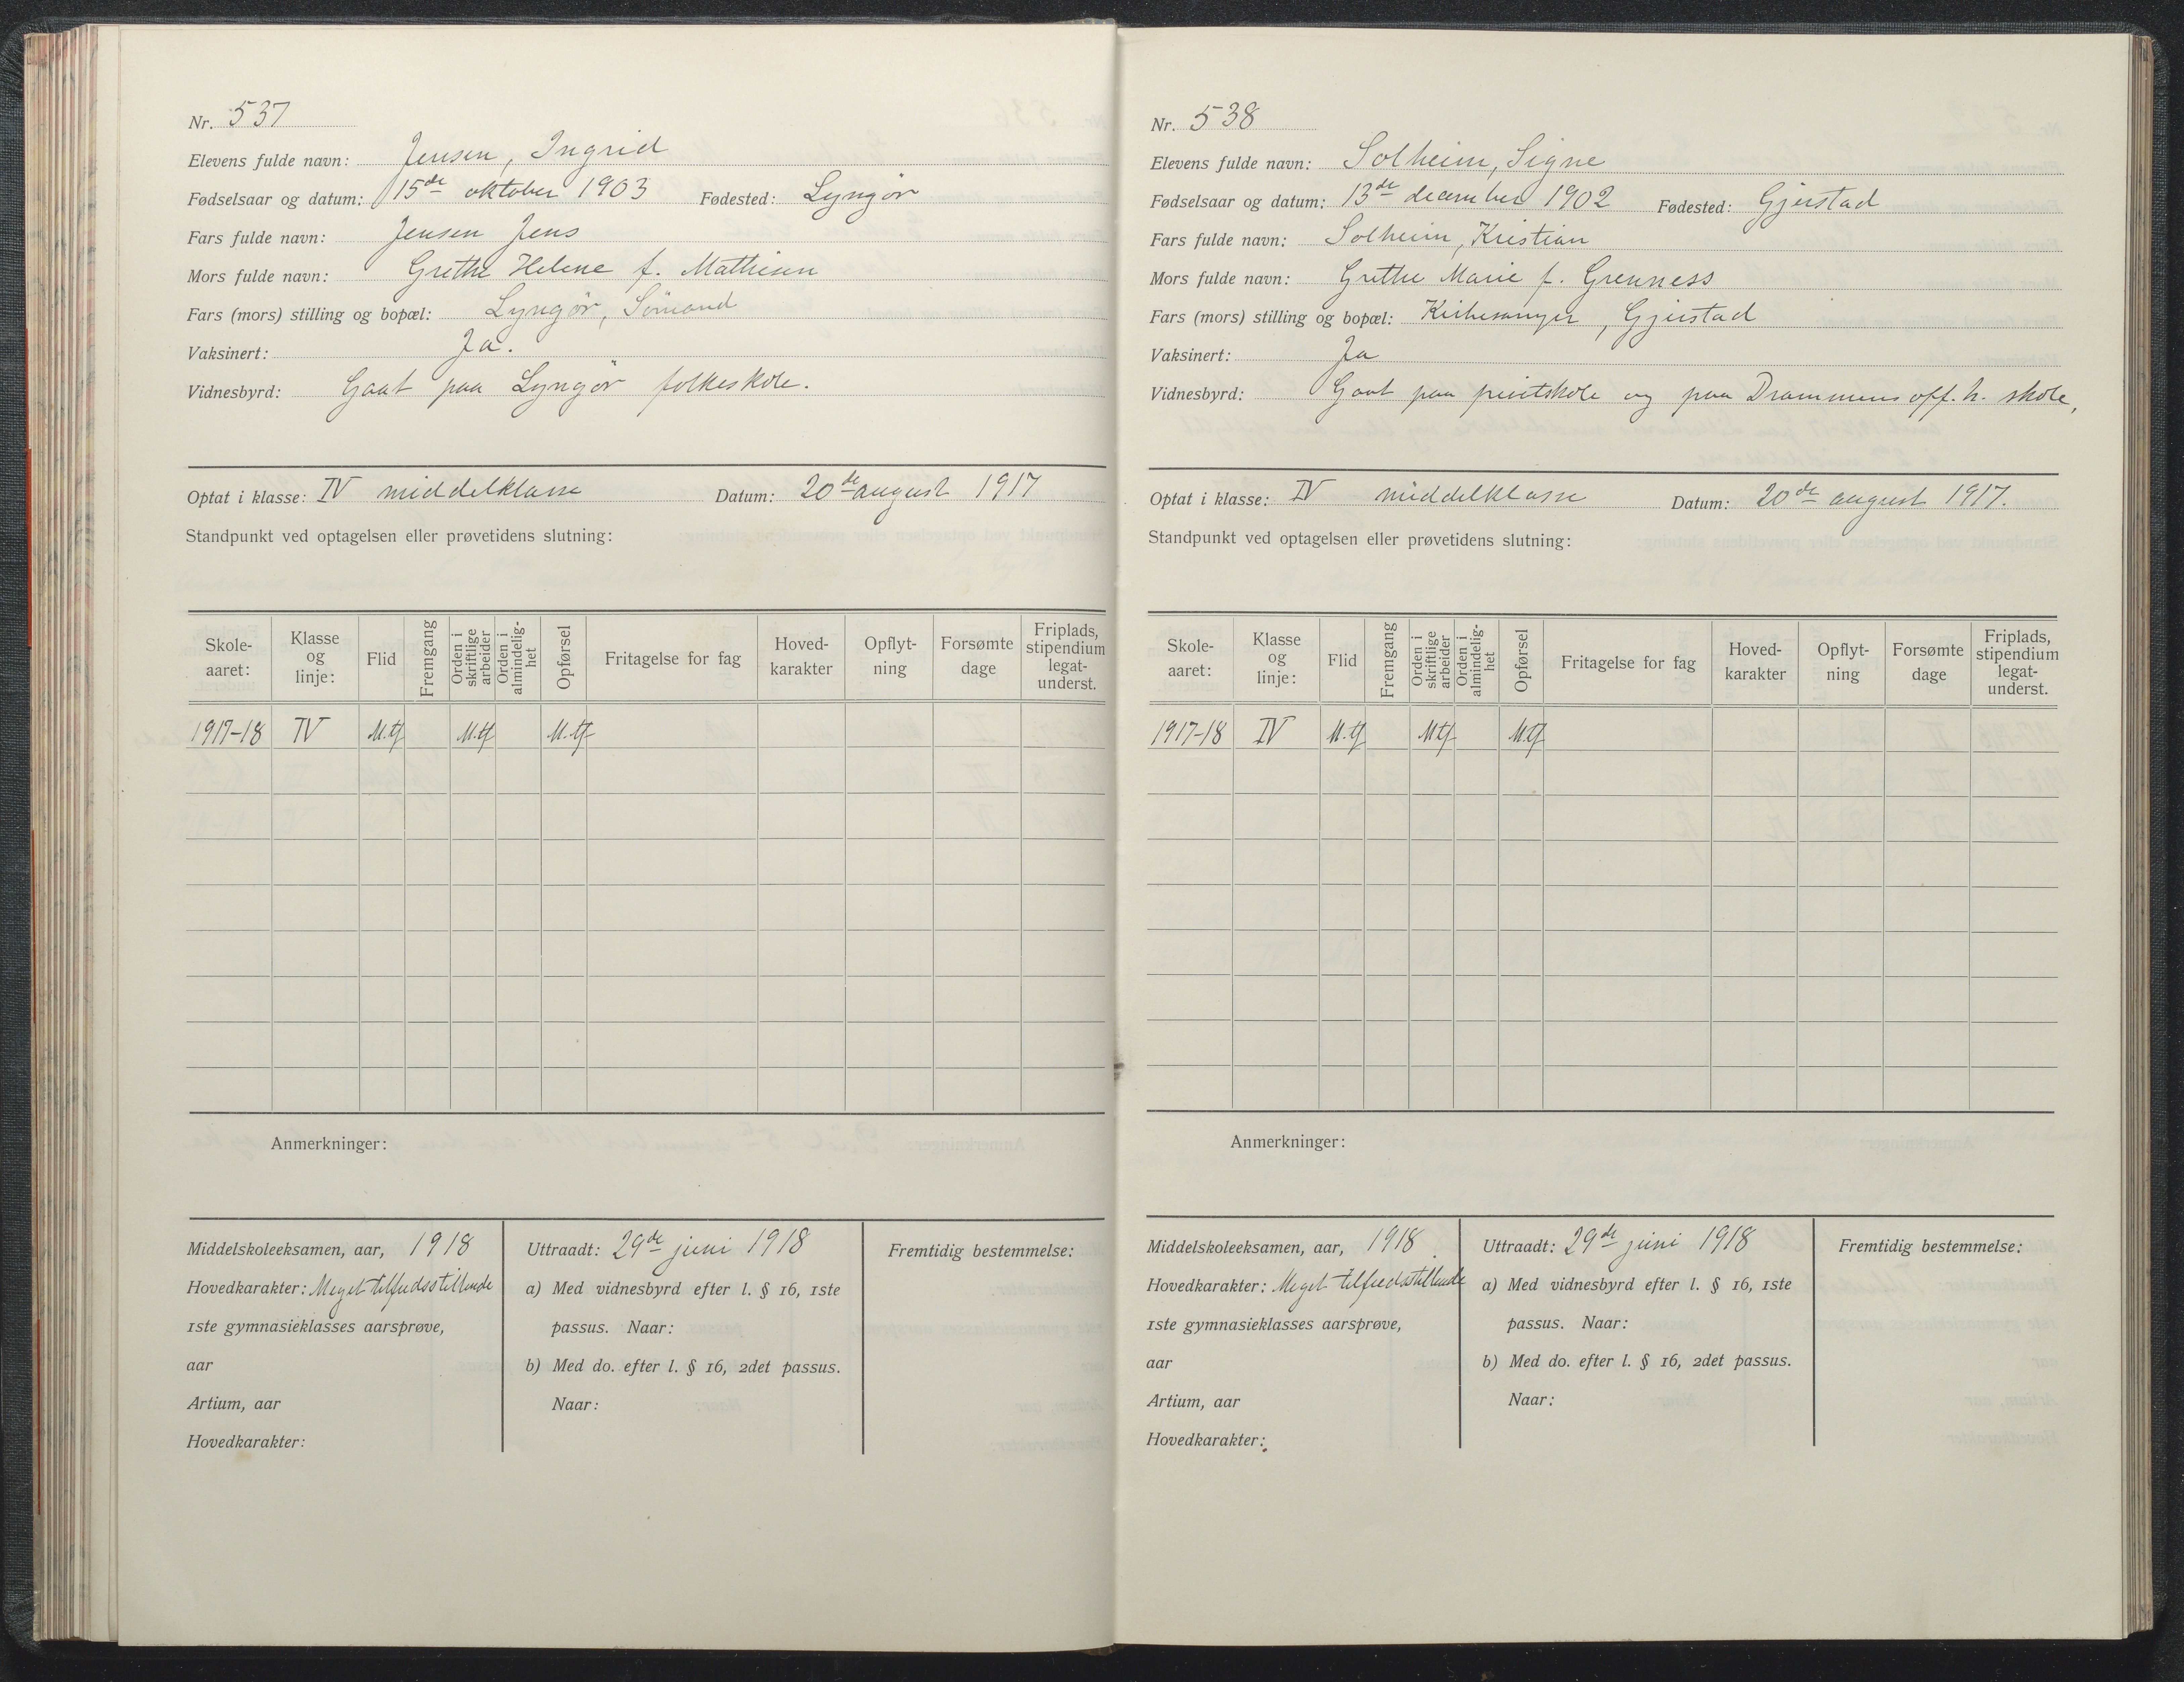 Nr. 537
Elevens fulde navn: Jensen, Ingrid
Fødselsaar og datum: 15de oktober 1903 Fødested: Lyngør
Fars fulde navn: Jensen Jens
Mors fulde navn: Grethe Helene f. Mathisen
Fars (mors) stilling og bopæl: Lyngør, Sømand
Vaksinert: Ja.
Vidnesbyrd: Gaat paa Lyngør folkeskole.
Optat i klasse: IV middelklasse Datum: 20de august 1917
Standpunkt ved optagelsen eller prøvetidens slutning:
Skole-aaret: Klasse og linje: Flid Fremgang Orden i skriftlige arbeider Orden i almindelig-het Opførsel Fritagelse for fag Hoved-karakter Opflyt-ning Forsømte dage Friplads, stipendium legat-underst.
1917-18 IV M.tf M.tf M.tf
Anmerkninger:
Middelskoleeksamen, aar, 1918
Hovedkarakter: Meget tilfredsstillende
1ste gymnasieklasses aarsprøve,
aar
Artium, aar
Hovedkarakter:
Uttraadt: 29de juni 1918
a) Med vidnesbyrd efter l. § 16, 1ste
passus. Naar:
b) Med do. efter l. § 16, 2det passus.
Naar:
Fremtidig bestemmelse:
Nr. 538
Elevens fulde navn: Solheim, Signe
Fødselsaar og datum: 13de december 1902 Fødested: Gjerstad
Fars fulde navn: Solheim, Kristian
Mors fulde navn: Grethe Marie f. Grenness
Fars (mors) stilling og bopæl: Kirkesanger, Gjerstad
Vaksinert: Ja
Vidnesbyrd: Gaat paa privatskole og paa Drammens off. h. skole,
Optat i klasse: IV middelklasse Datum: 20de august 1917.
Standpunkt ved optagelsen eller prøvetidens slutning:
Skole-aaret: Klasse og linje: Flid Fremgang Orden i skriftlige arbeider Orden i almindelig-het Opførsel Fritagelse for fag Hoved-karakter Opflyt-ning Forsømte dage Friplads, stipendium legat-underst.
1917-18 IV M.tf Mtf M.tf
Anmerkninger:
Middelskoleeksamen, aar, 1918.
Hovedkarakter: Meget tilfredsstillende
1ste gymnasieklasses aarsprøve,
aar
Artium, aar
Hovedkarakter:
Uttraadt: 29de juni 1918
a) Med vidnesbyrd efter l. § 16, 1ste
passus. Naar:
b) Med do. efter l. § 16, 2det passus.
Naar:
Fremtidig bestemmelse: